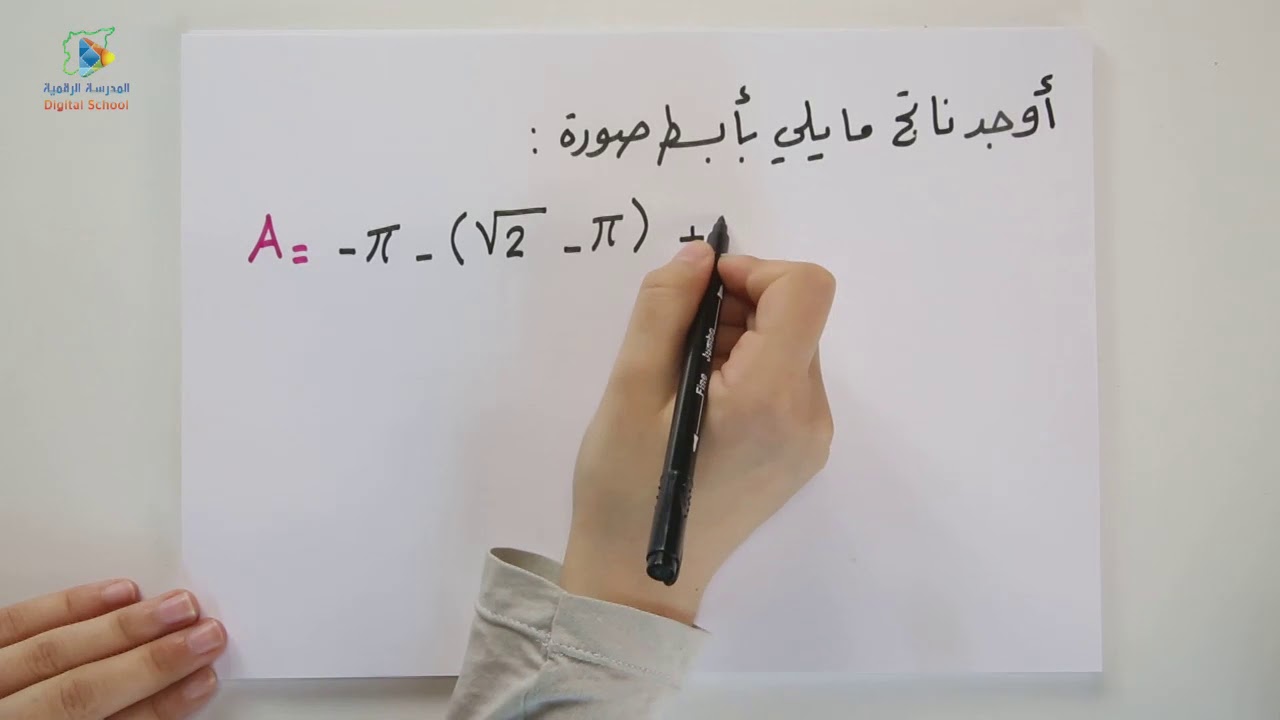 المدرسة الرقمية
Digital School
أوجد ناتج ما يلي بأبسط صورة :
A = -π - (√2 - π) +
Jumbo
Fine